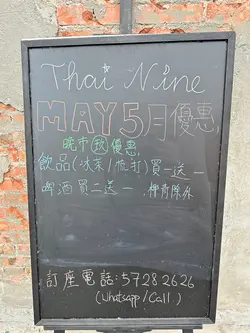 Thai Nine
MAY 5月優惠
晚市(秋)優惠
飲品(冰茶/梳打)買一送一
啤酒買二送一,檸青除外
訂座電話:57282626
(Whatsapp/Call)